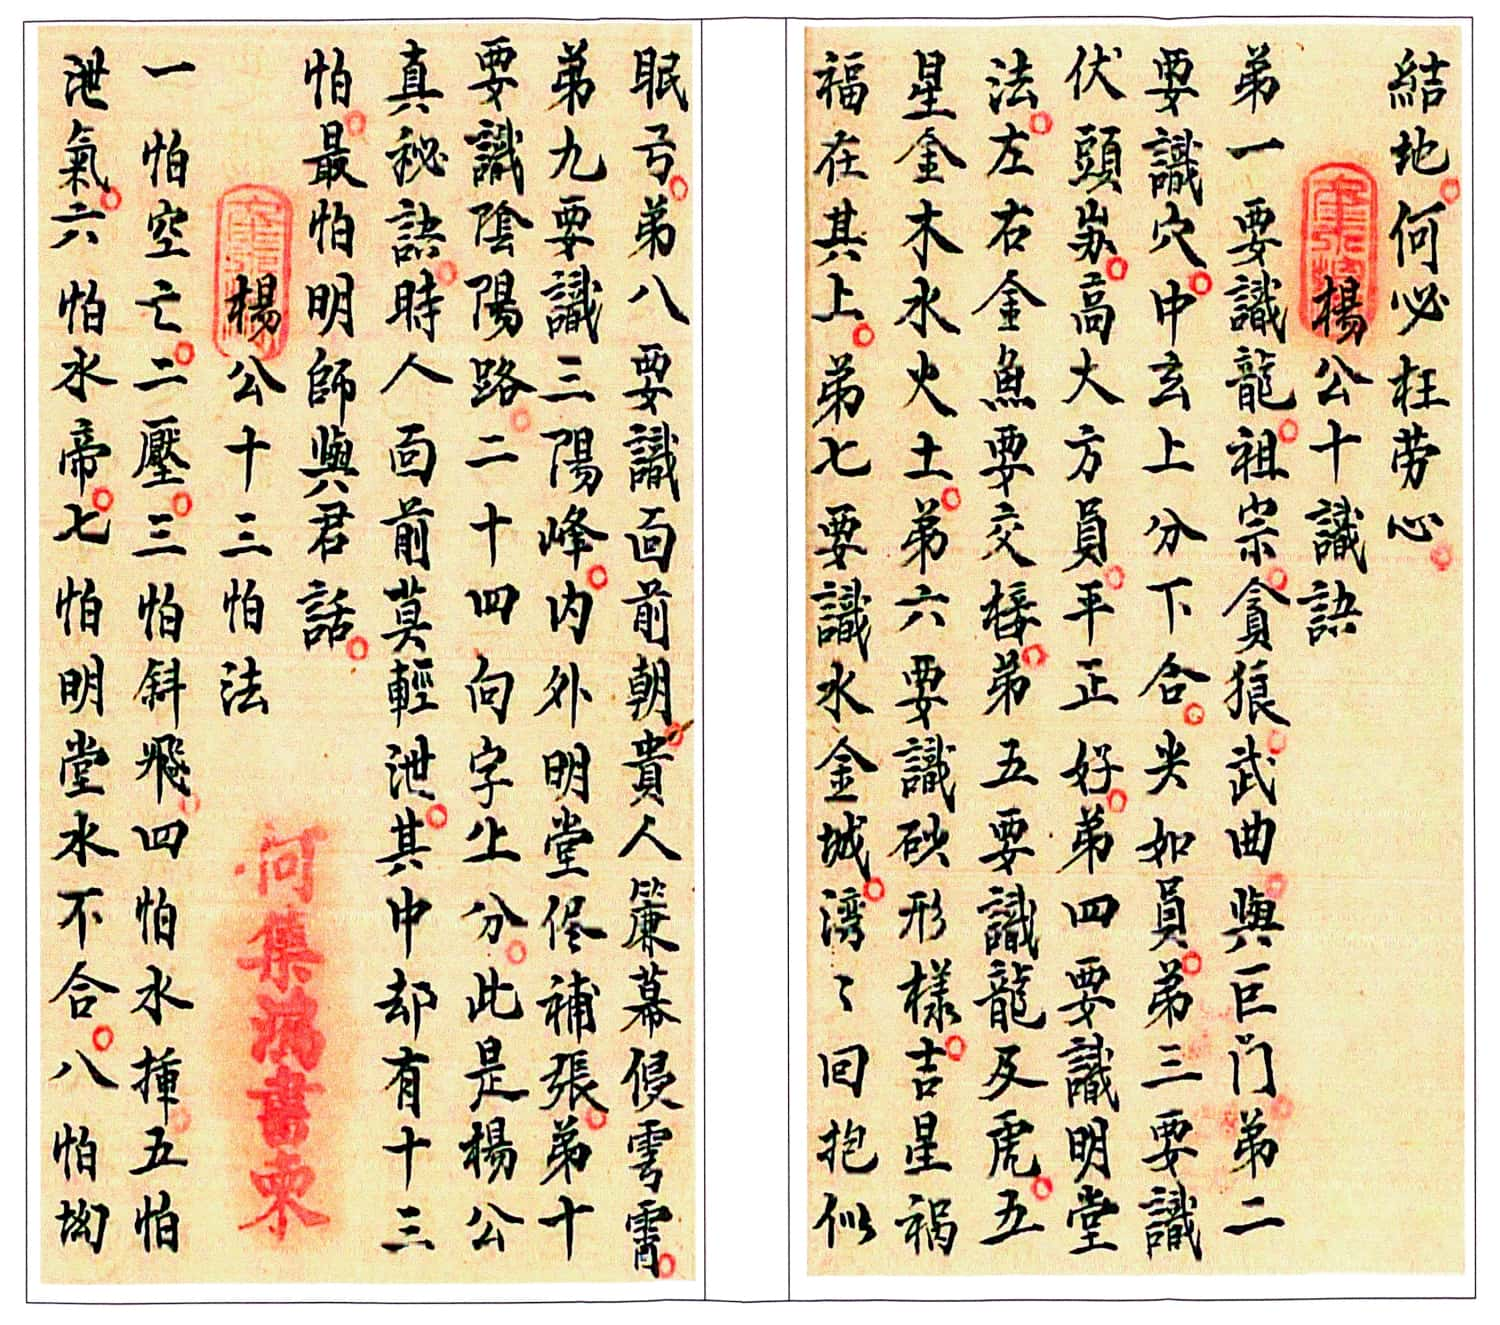 結地何必枉劳心
楊公十識訣
弟一要識龍祖宗貪狼武曲與巨门弟二
要識穴中玄上分下合尖如員弟三要識
伏頭岽高大方員平正好弟四要識明堂
法左右金魚要交椄弟五要識龍及虎五
星金木水火土弟六要識砂形樣吉星祸
福在其上弟七要識水金城湾〻回抱似
眠弓弟八要識面前朝貴人簾幕侵雲霄
弟九要識三陽峰内外明堂侭補張弟十
要識陰陽路二十四向字上分此是楊公
真秘訣時人面前莫輕泄其中却有十三
怕最怕明師與君話
楊公十三怕法
一怕空亡二壓三怕斜飛四怕水揰五怕
泄氣六怕水帝七怕明堂水不合八怕坳
何集鴻書柬